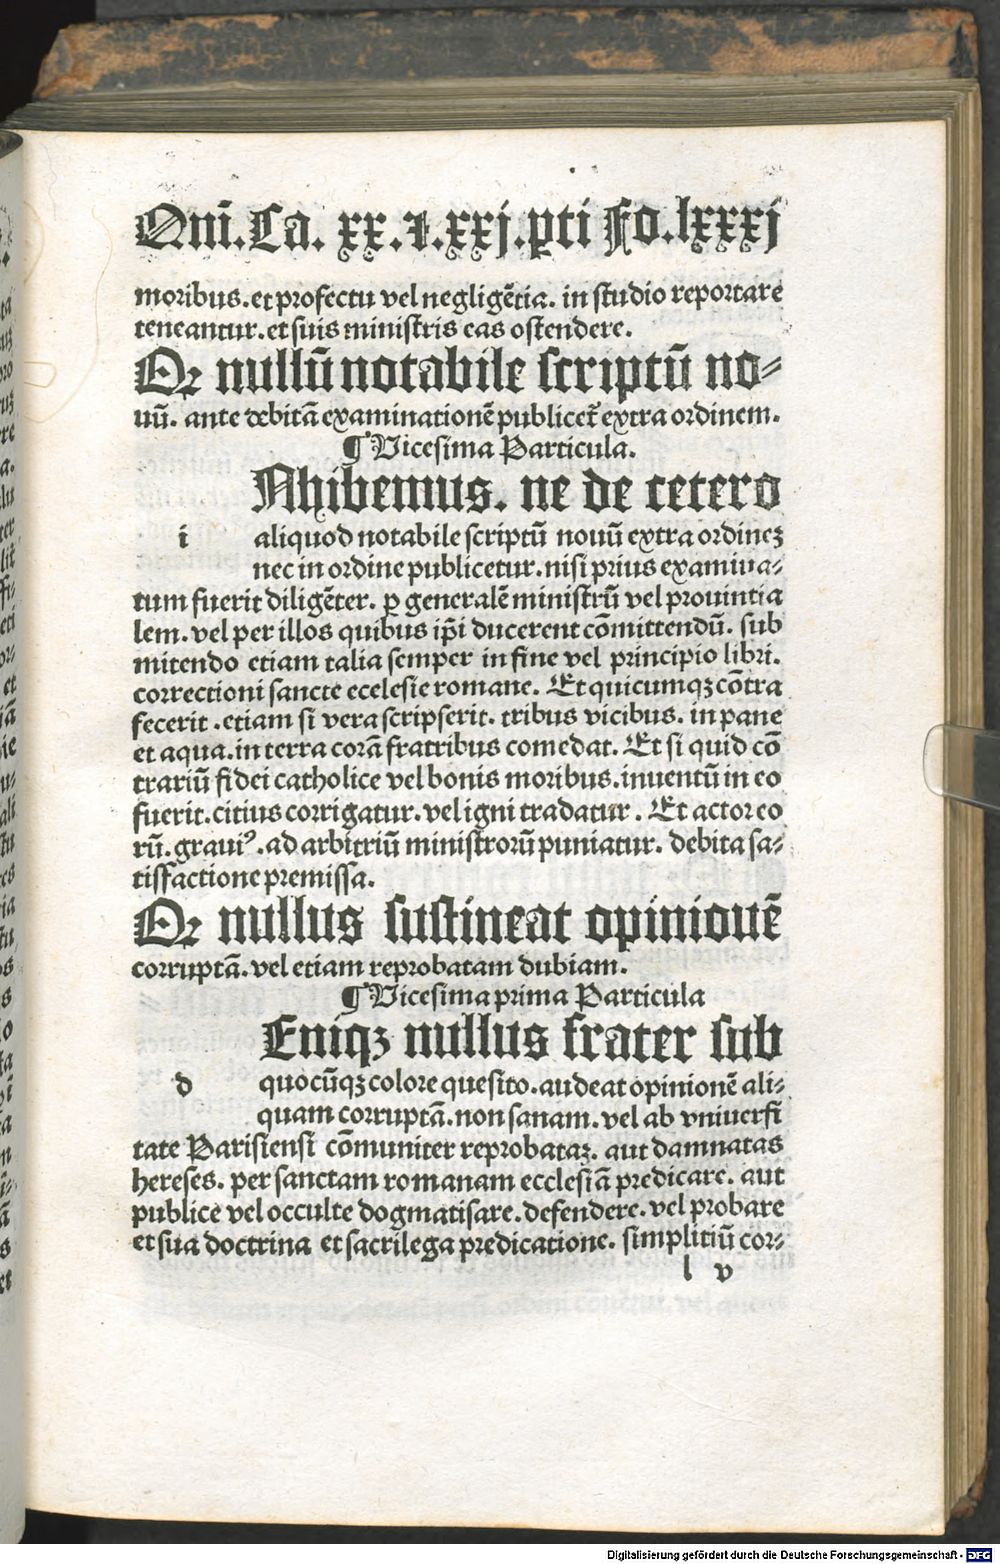 Qni̅. Ca. xx. ⁊. xxj. p̲ti Fo. lxxxj
moribus. et profectu vel neglige̅tia. in studio reportare
teneantur. et suis ministris eas ostendere.
Qꝛ nullu̅ notabile scriptu̅ no⸗
uu̅. ante debita̅ examinatione̅ publicet̅ extra ordinem.
¶ Vicesima Particula.
Nhibemus. ne de cetero
i aliquod notabile scriptu̅ nouu̅ extra ordineꝫ
nec in ordine publicetur. nisi prius examina⸗
tum fuerit dilige̅ter. ꝑ generale̅ ministru̅ vel prouintia
lem. vel per illos quibus ip̅i ducerent co̅mittendu̅. sub
mitendo etiam talia semper in fine vel principio libri.
correctioni sancte ecclesie romane. Et quicumqꝫ co̅tra
fecerit. etiam si vera scripserit. tribus vicibus. in pane
et aqua. in terra cora̅ fratribus comedat. Et si quid co̅
trariu̅ fidei catholice vel bonis moribus. inuentu̅ in eo
fuerit. citius corrigatur. vel igni tradatur. Et actor eo
ru̅. grauiꝰ. ad arbitriu̅ ministroru̅ puniatur. debita sa⸗
tisfactione premissa.
Qꝛ nullus sustineat opinioue̅
corrupta̅. vel etiam reprobatam dubiam.
¶ Vicesima prima Particula
Eniqꝫ nullus frater sub
d quocu̅qꝫ colore quesito. audeat opinione̅ ali⸗
quam corrupta̅. non sanam. vel ab vniuersi
tate Parisiensi co̅muniter reprobataꝫ. aut damnatas
hereses. per sanctam romanam ecclesia̅ predicare. aut
publice vel occulte dogmatisare. defendere. vel probare
et sua doctrina et sacrilega predicatione. simplitiu̅ cor⸗
l v
Digitalisierung gefördert durch die Deutsche Forschungsgemeinschaft - DFG